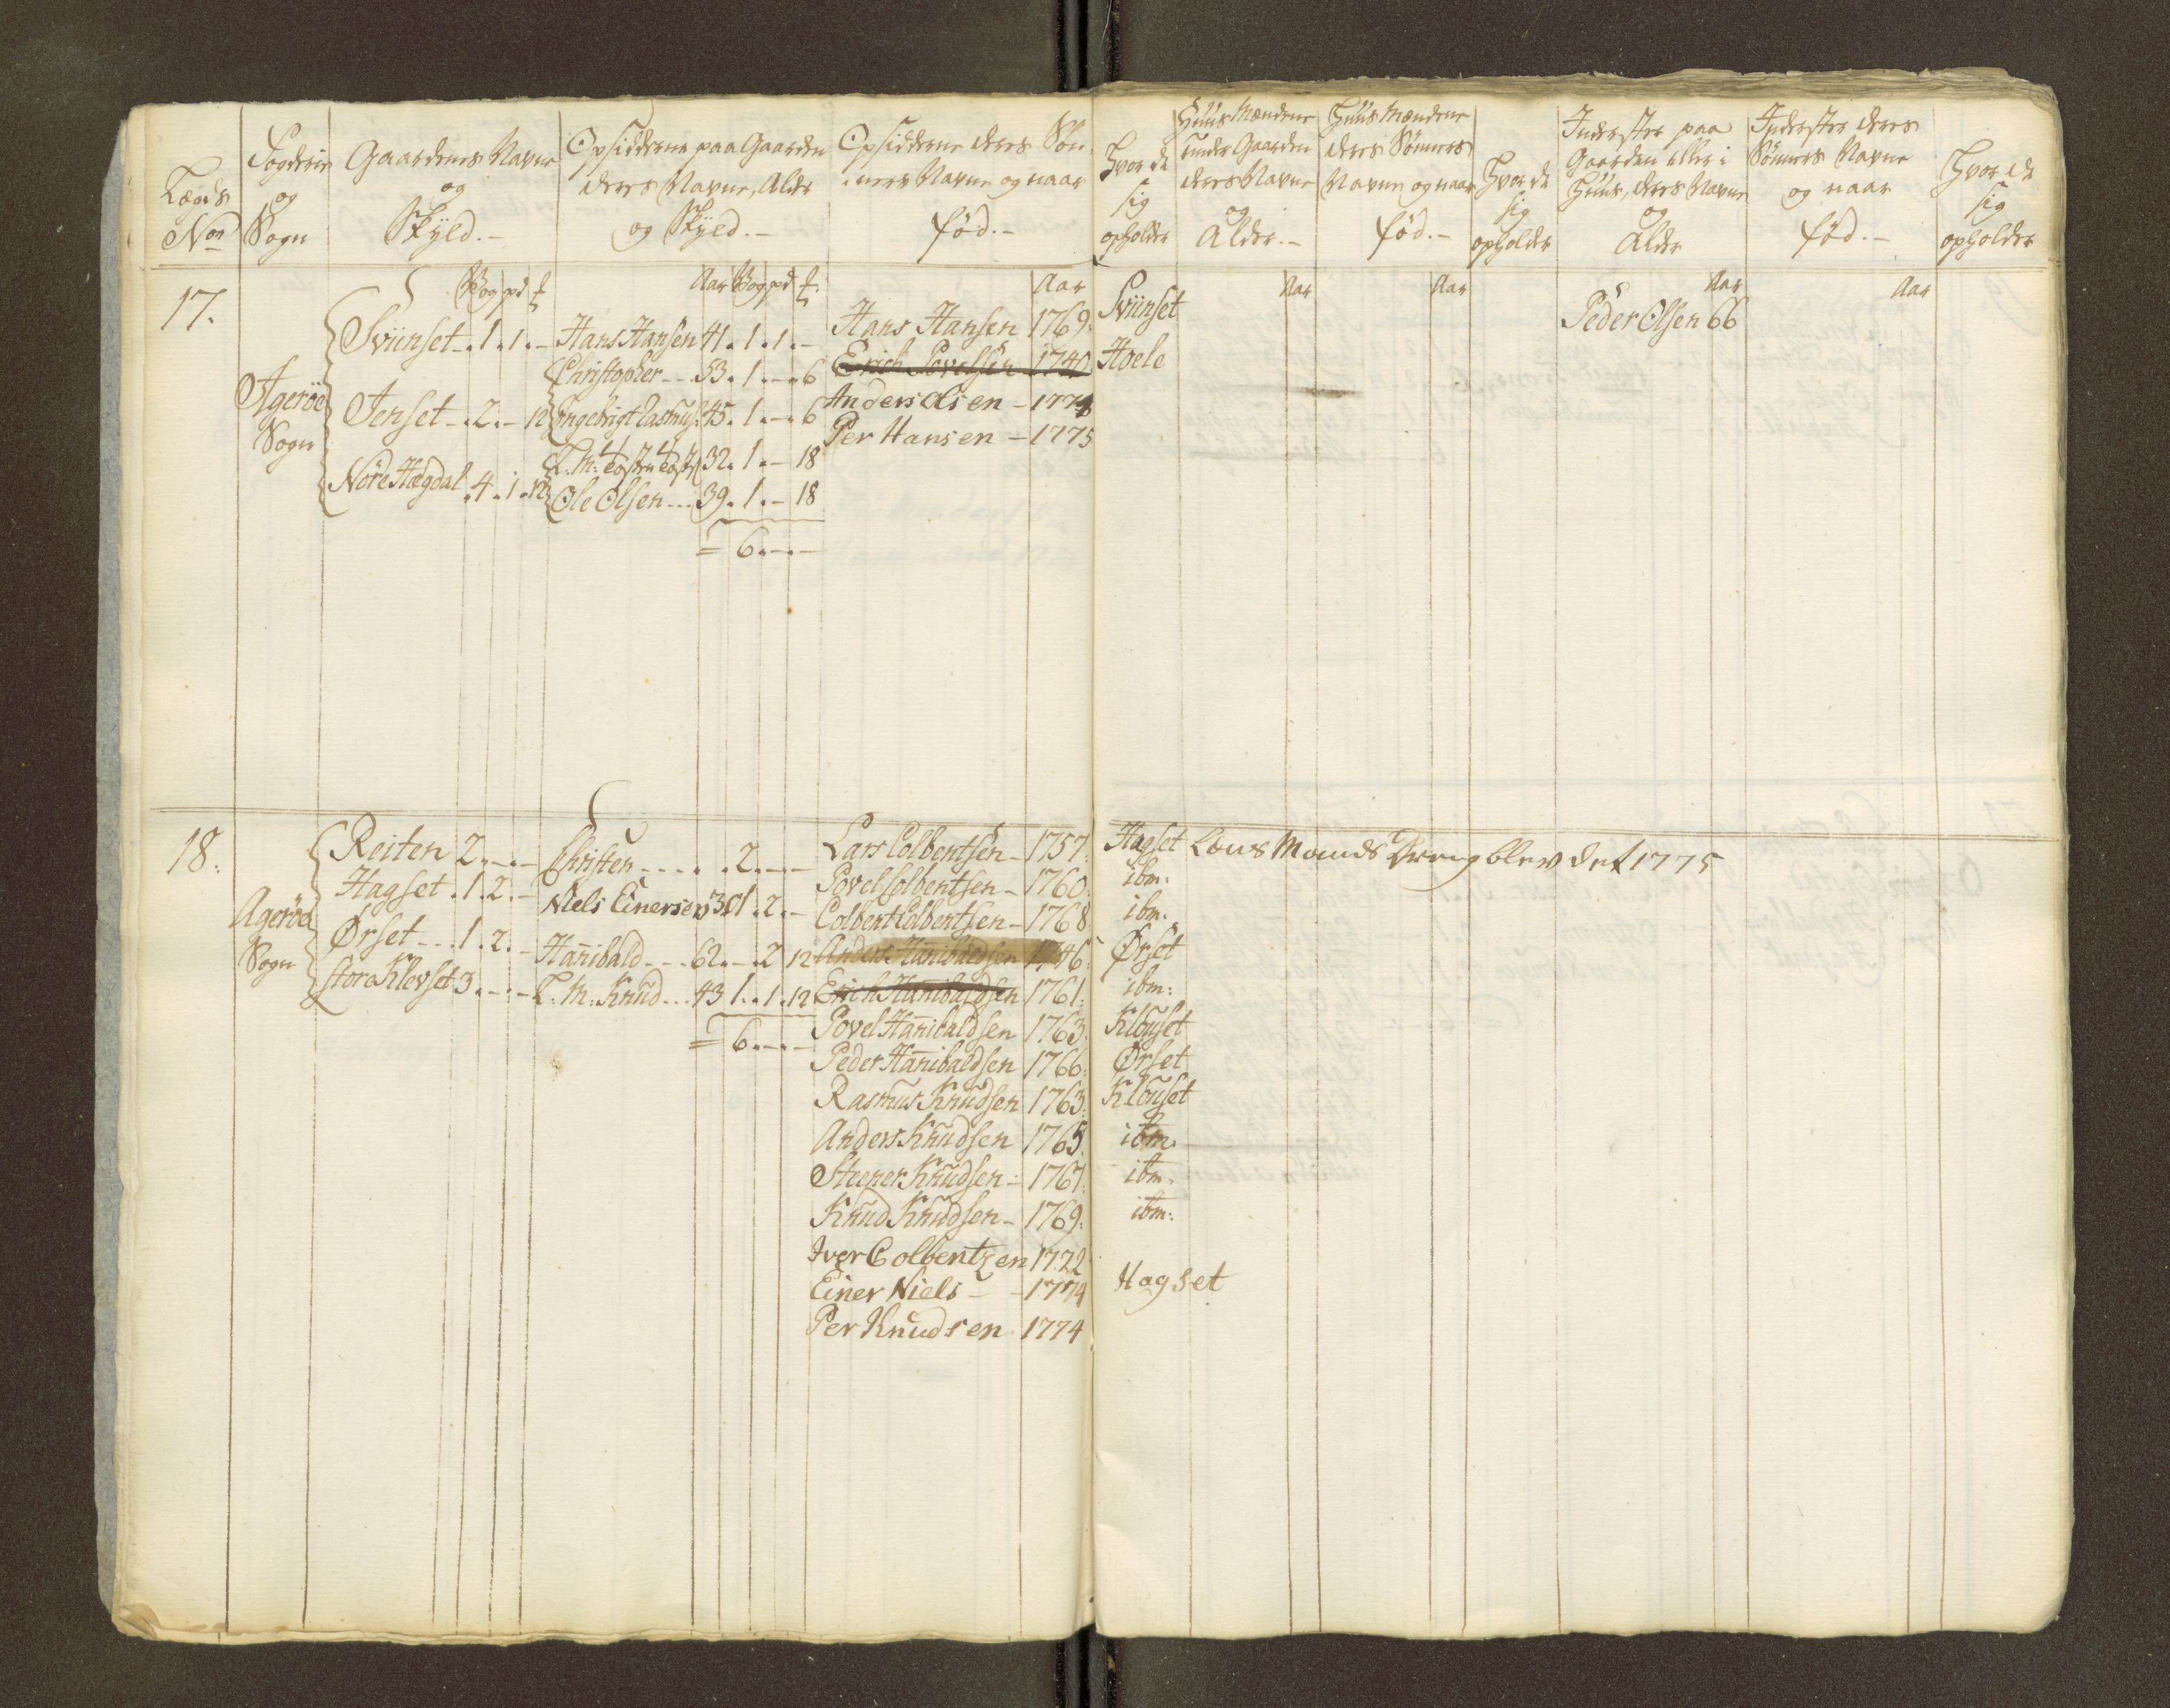 Lægds
No
Fogderie
og
Sogn
Gaardenes Navne
og
Skyld.-
Opsidderne paa Gaarden
deres Navne, Alder
og Skyld.-
Opsidderne deres Søn-
ners Navne og naar
fød.-
Hvor de
sig
opholder
Huus Mændene
under Gaarden
deres Navne
og
Alder.-
Huus Mændene
deres Sønners
Navne og naar
fød.-
Hvor de
sig
opholder
Inderster paa
Gaarden eller i
Huus, deres Navne
og
Alder
Inderster deres
Sønners Navne
og naar
fød.-
Hvor de
sig
opholder
17.
Agerøe
Sogn
Vog pd
Sviinset - 1. 1. -
Jenset - 2. - 12
Nøre Hægdal . 4. 1. 12
Aar Vog pd
Hans Hansen 41. 1. 1. -
Christopher - - 53. 1. - . 6
Engebrigt Rasmus: 45. 1. - . 6
L. M: 32. 1. - 18
Ole Olsen - - - 39. 1. - 18
= 6. - . -
Aar
Hans Hansen 1769.
Erich Povelsen - 1740
Anders Olsen - 1774
Per Hansen - 1775
Sviinset
Hoele
Aar
Aar
Aar
Peder Olsen 66
Aar
18.
Agerøe
Sogn
Reiten 2. - . -
Hagset . 1. 2. -
Ørset - - . 1. 2. -
store Klevset 3. - . -
Christen - - - . . 2. - . -
Niels Einersen 30 1. 2. -
Hanibald - - - 62. - . 2 12
L: M: Knud - - . 43 1. . 1. 12
= 6. - . -
Lars Colbentsen - 1757:
Povel Colbentsen - 1760:
Colbent Colbentsen - 1768
Anders Hanibaldsen 1746:
Erich Hanibaldsen 1761:
Povel Hanibaldsen 1763:
Peder Hanibaldsen 1766:
Rasmus Knudsen 1763:
Anders Knudsen 1765.
Steener Knudsen - 1767:
Knud Knudsen - 1769:
Iver Colbentzen 1772
Einer Niels - - 1774
Per Knudsen . 1774
Hagset Lens Mands Dreng blev det 1775
ibm:
ibm.
Ørset
ibm:
Klouset
Ørset
Klouset
ibm.
ibm.
ibm:
Hagset